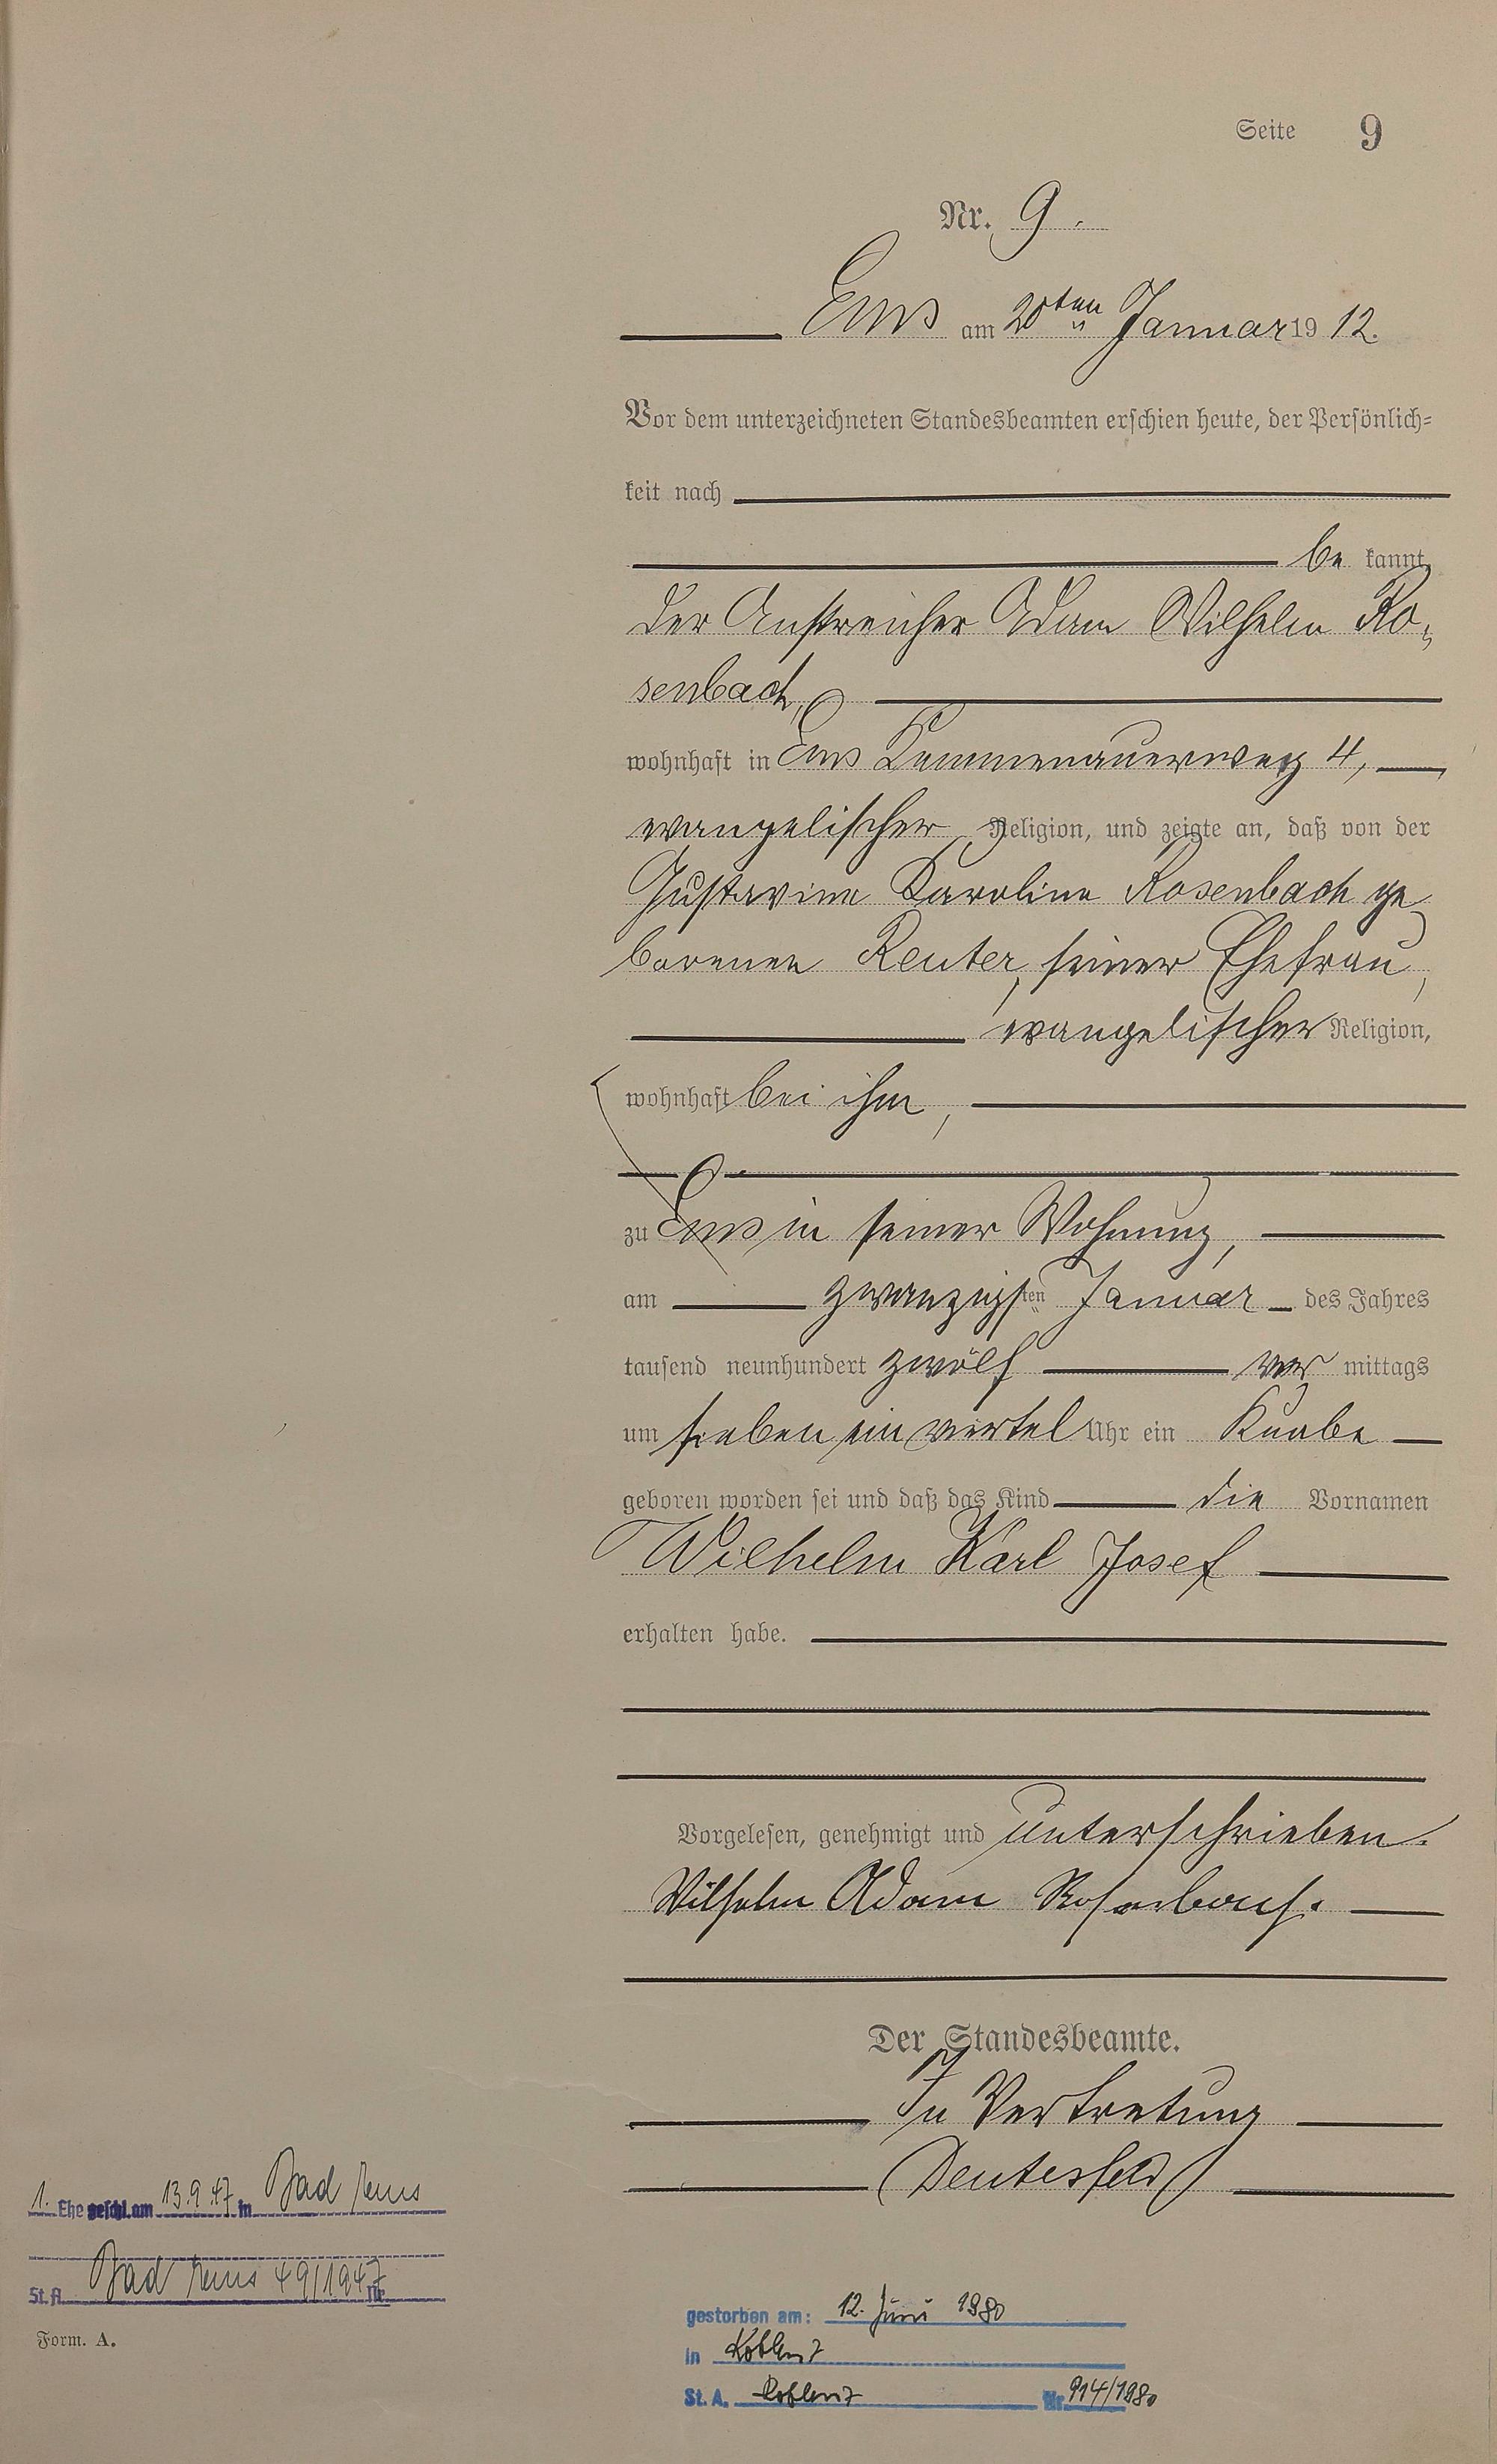 Seite 9
Nr. 9.
Ems am 20ten Januar 1912.
Vor dem unterzeichneten Standesbeamten erschien heute, der Persönlich-
keit nach
be kannt,
der Anstreicher Adam Wilhelm Ro-
senbach,
wohnhaft in Ems Kemmenauerweg 4,
evangelischer Religion, und zeigte an, daß von der
Gustavine Karoline Rosenbach ge
borenen Reuter, seiner Ehefrau,
evangelischer Religion,
wohnhaft bei ihm,
zu Ems in seiner Wohnung,
am zwanzigsten Januar des Jahres
tausend neunhundert zwölf vor mittags
um sieben ein viertel Uhr ein Knabe
geboren worden sei und daß das Kind die Vornamen
Wilhelm Karl Josef
erhalten habe.
Vorgelesen, genehmigt und unterschrieben.
Wilhelm Adam Rosenbach.
Der Standesbeamte.
In Vertretung
(Deutesfeld)
1. Ehe geschl. am 13.9.47 in Bad Ems
St. A. Bad Ems 49/1947 Nr.
Form. A.
gestorben am: 12. Juni 1980
in Koblenz
St. A. Koblenz Nr. 914/1980